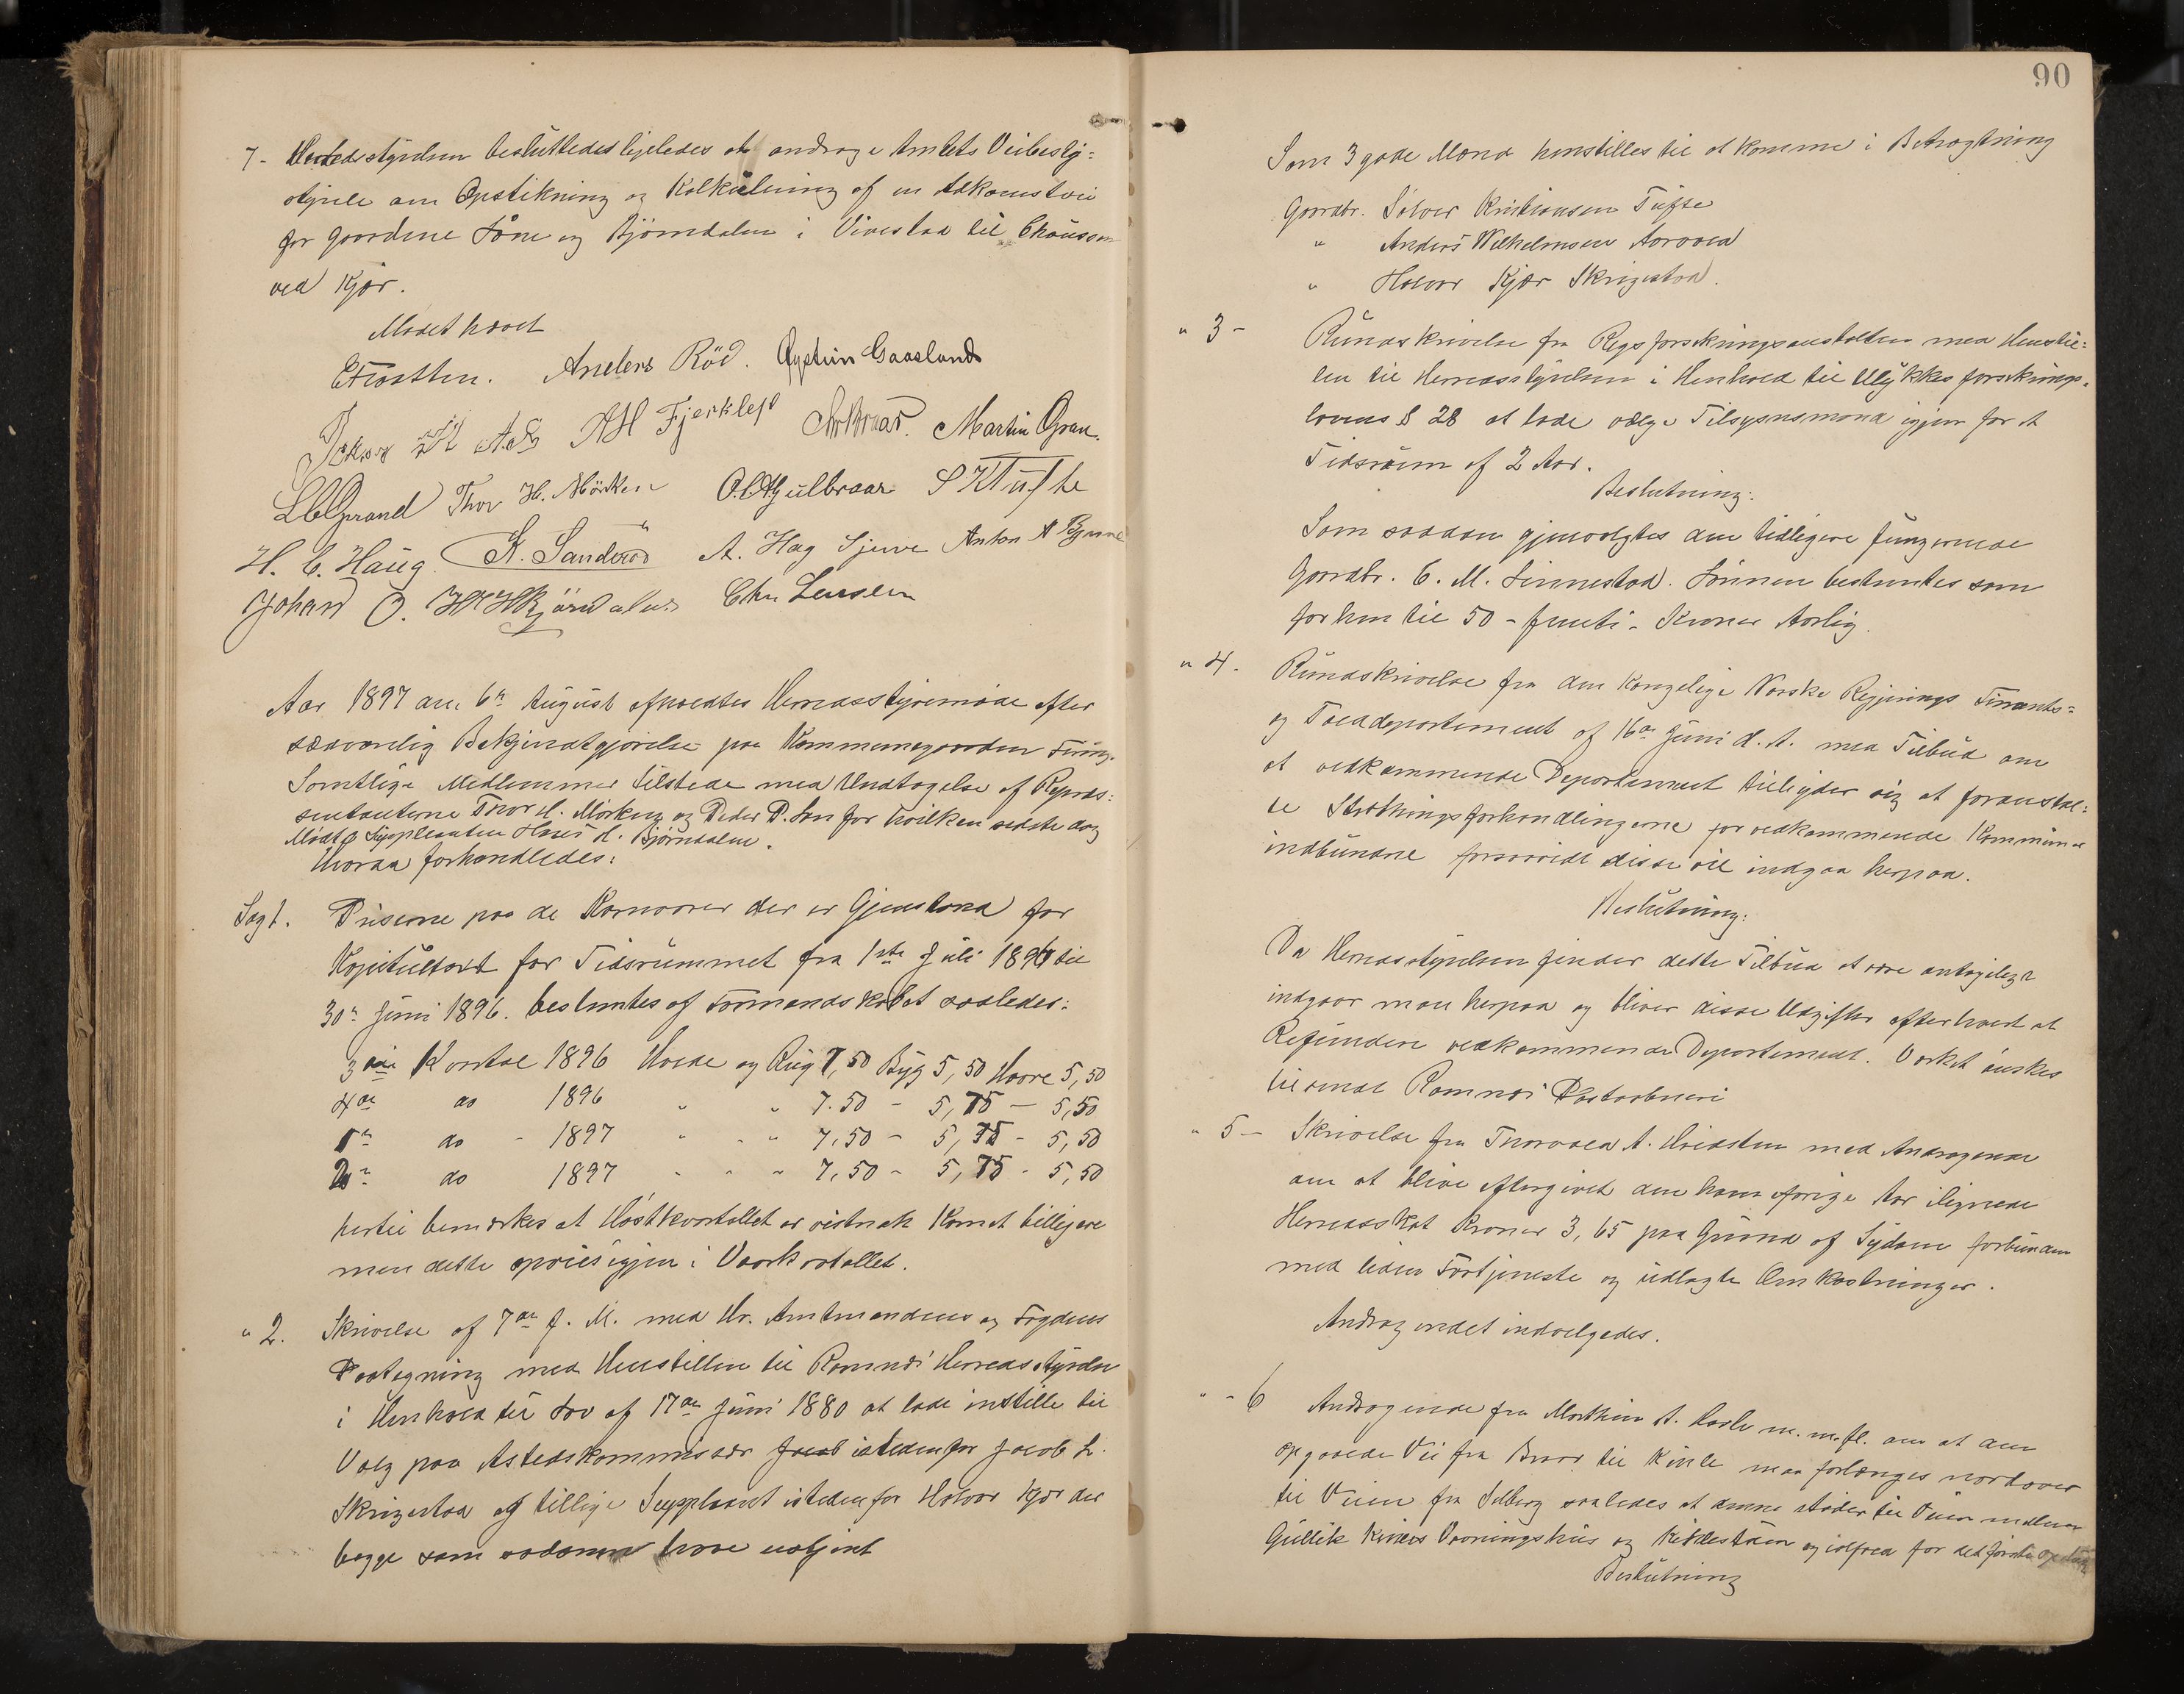 7- Herredsstyrelsen besluttedes ligeledes at andrage Amtets Veibesty=
styrele om Opstikning og Kalkulering af en Adkomstvei
for Gaardene Søne og Bjørndalen i Vivestad til Chausseen
ved Kjær.
Mødet hævet
Anders Röd. Øystein Gaasland
AH Fjerkleps Martin Gran.
Thor H. Mörken O.C. Gulbraar S K Tufte
H. C. Haug K. Sanderöd A. Hag Sjeue Anton A
Johan O. H H Bjørndalen Chr Larsen
Aar 1897 den 6te August afholdtes Herredsstyremøde efter
sædvanlig Bekjendtgjørelse paa Kommunegaarden Fung.
Samtlige Medlemmer tilstede med Undtagelse af Repræs:
sentanterne Thor H. Mörken og Peder P. Søn for hvilken sidste dog
Mødte Suppleanten Hans H. Bjørndalen.
Hvoraa forhandledes:
Sag 1. Priserne paa de Kornvarer der er Gjenstand for
Kapiteltaxt for Tidsrummet fra 1ste Juli 1896 til
30te Juni 1896. bestemtes af Formandskabet saaledes:
3die Kvartal 1896 Hvede og Rug 7,50 Byg 5,50 Havre 5,50
4de do 1896 " " 7.50 - 5,75 - 5,50
1te do - 1897 " " " 7,50 - 5,75 - 5,50
2de do 1897 " " " 7,50 - 5,75 - 5,50
hertil bemerkes at Høstkvartallet er vistnok Kornet billigere
men dette opveies igjen i Vaarkvartallet.
" 2. Skrivelse af 7de f. M. med Hr. Amtmandens og Fogdens
Paategning med Henstillen til Ramnæs Herredsstyrelse
i Henhold til Lov af 17de Juni 1880 at lade instille til
Valg paa Astedskommissær Jacob istedenfor Jacob L.
Skrigestad og tillige Suppleant istedenfor Halvor Kjær der
begge som saadanne have udtjent
90
Som 3 gode Mænd henstilles til at komme i Betragtning
Gaardbr. Sölver Kristiansen Tufte
" Anders Wilhelmsen Aarvold
" Halvor Kjær Skrigestad.
" 3- Rundskrivelse fra Rigsforsikringsanstalten med Henstil:
len til Herredsstyrelsen i Henhold til Ulykkesforsikrings.
lovens § 28 at lade vælge Tilsynsmænd igjen for et
Tidsrum af 2 Aar.
Beslutning:
Som saadan gjenvalgtes den tidligere fungerende
Gaardbr. C. M. Linnestad. Lønnen bestemtes som
forhen til 50 - femti - Kroner Aarlig.
" 4. Rundskrivelse fra den Kongelige Norske Regjerings Finants=
og Tolddepartement af 16de Juni d. A. med Tilbud om
at vedkommende Departement tilbyder sig at foranstal:
te Storthingsforhandlingerne for vedkommende Kommuner
indbundne forsaavidt disse vil indgaa herpaa.
Beslutning:
Da Herredsstyrelsen finder dette Tilbud at være antageligt
indgaar man herpaa og bliver disse Udgifter efterhvert at
Refundere vedkommende Departement. Værket ønskes
tilsendt Ramnæs Postaabneri
" 5- Skrivelse fra Thorvald A. Hvidsten med Andragende
om at blive eftergivet den ham forrige Aar ilignede
Herredsskat Kroner 3,65 paa Grund af Sygdom forbunden
med liden Fortjeneste og udlagte Omkostninger.
Andragendet indvilgedes.
" - 6 Andragende fra Mathias A. Hasle m. m. fl. om at den
opgaaede Vei fra Braar til Kinle maa forlænges nordover
til Veien fra Solberg saaledes at denne støder til Veien mellem
Gullik Kinles Vaaningshus og og ialfald for det første
Beslutning